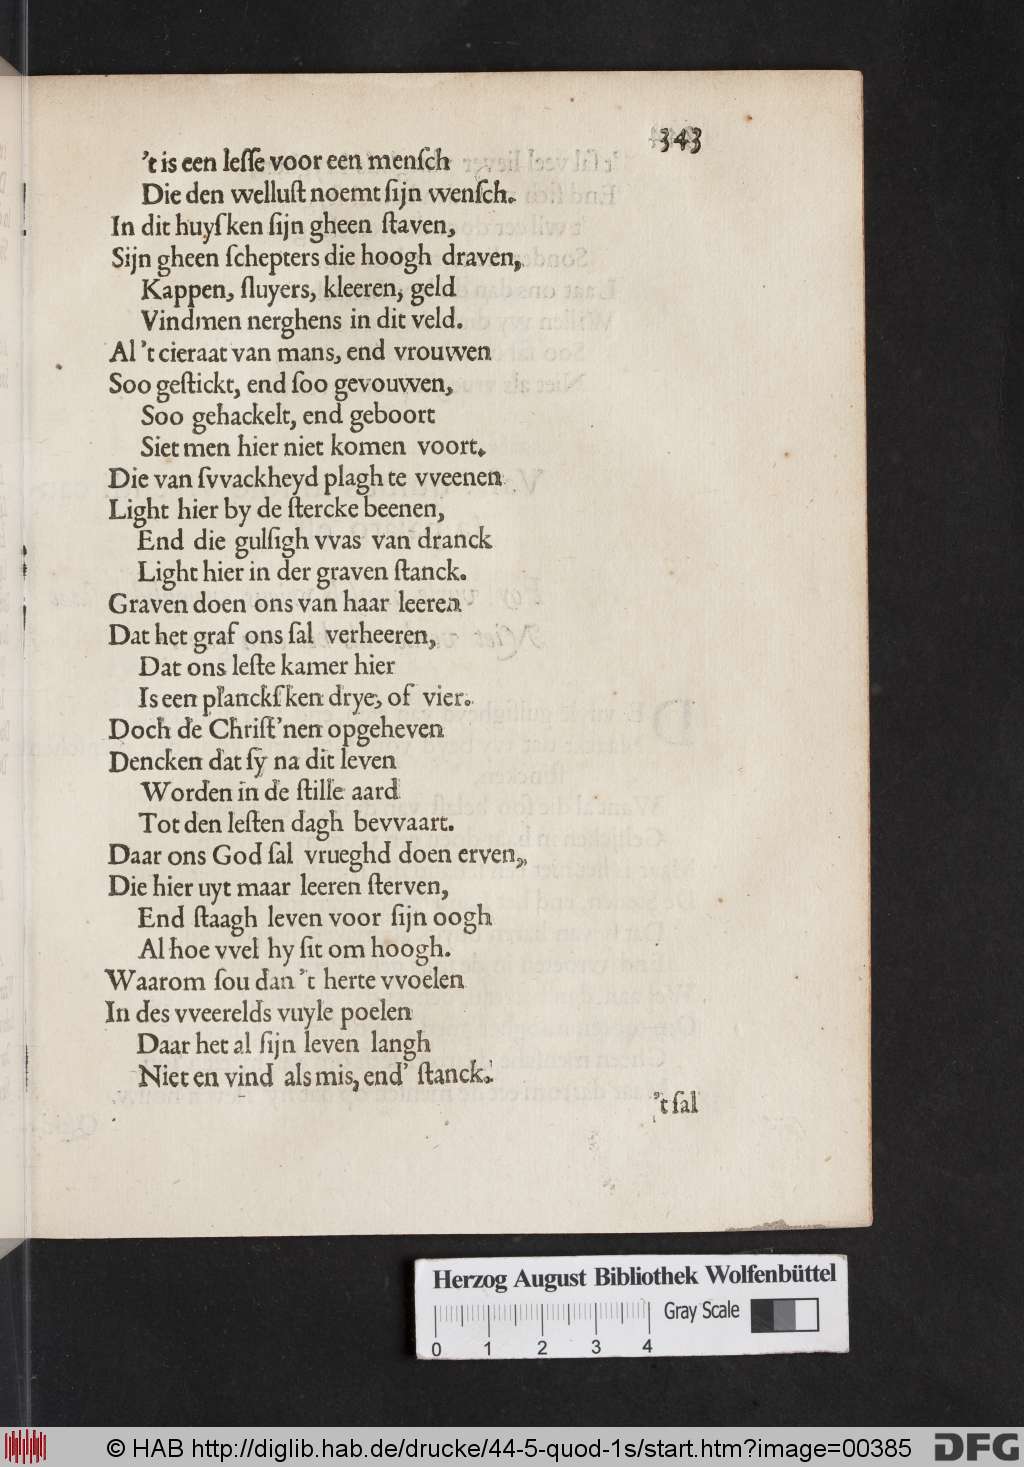 343
’t is een leſſe voor een menſch
Die den welluſt noemt ſijn wenſch.
In dit huyſken ſijn gheen ſtaven,
Sijn gheen ſchepters die hoogh draven,
Kappen, ſluyers, kleeren, geld
Vindmen nerghens in dit veld.
Al ’t cieraat van mans, end vrouwen
Soo geſtickt, end ſoo gevouwen,
Soo gehackelt, end geboort
Siet men hier niet komen voort.
Die van ſvvackheyd plagh te vveenen
Light hier by de ſtercke beenen,
End die gulſigh vvas van dranck
Light hier in der graven ſtanck.
Graven doen ons van haar leeren
Dat het graf ons ſal verheeren,
Dat ons leſte kamer hier
Is een planckſken drye, of vier.
Doch de Chriſt’nen opgeheven
Dencken dat ſy na dit leven
Worden in de ſtille aard
Tot den leſten dagh bevvaart.
Daar ons God ſal vrueghd doen erven,
Die hier uyt maar leeren ſterven,
End ſtaagh leven voor ſijn oogh
Al hoe vvel hy ſit om hoogh.
Waarom ſou dan ’t herte vvoelen
In des vveerelds vuyle poelen
Daar het al ſijn leven langh
Niet en vind als mis, end’ ſtanck.
’t ſal
Herzog August Bibliothek Wolfenbüttel
Gray Scale
0 1 2 3 4
© HAB http://diglib.hab.de/drucke/44-5-quod-1s/start.htm?image=00385
DFG